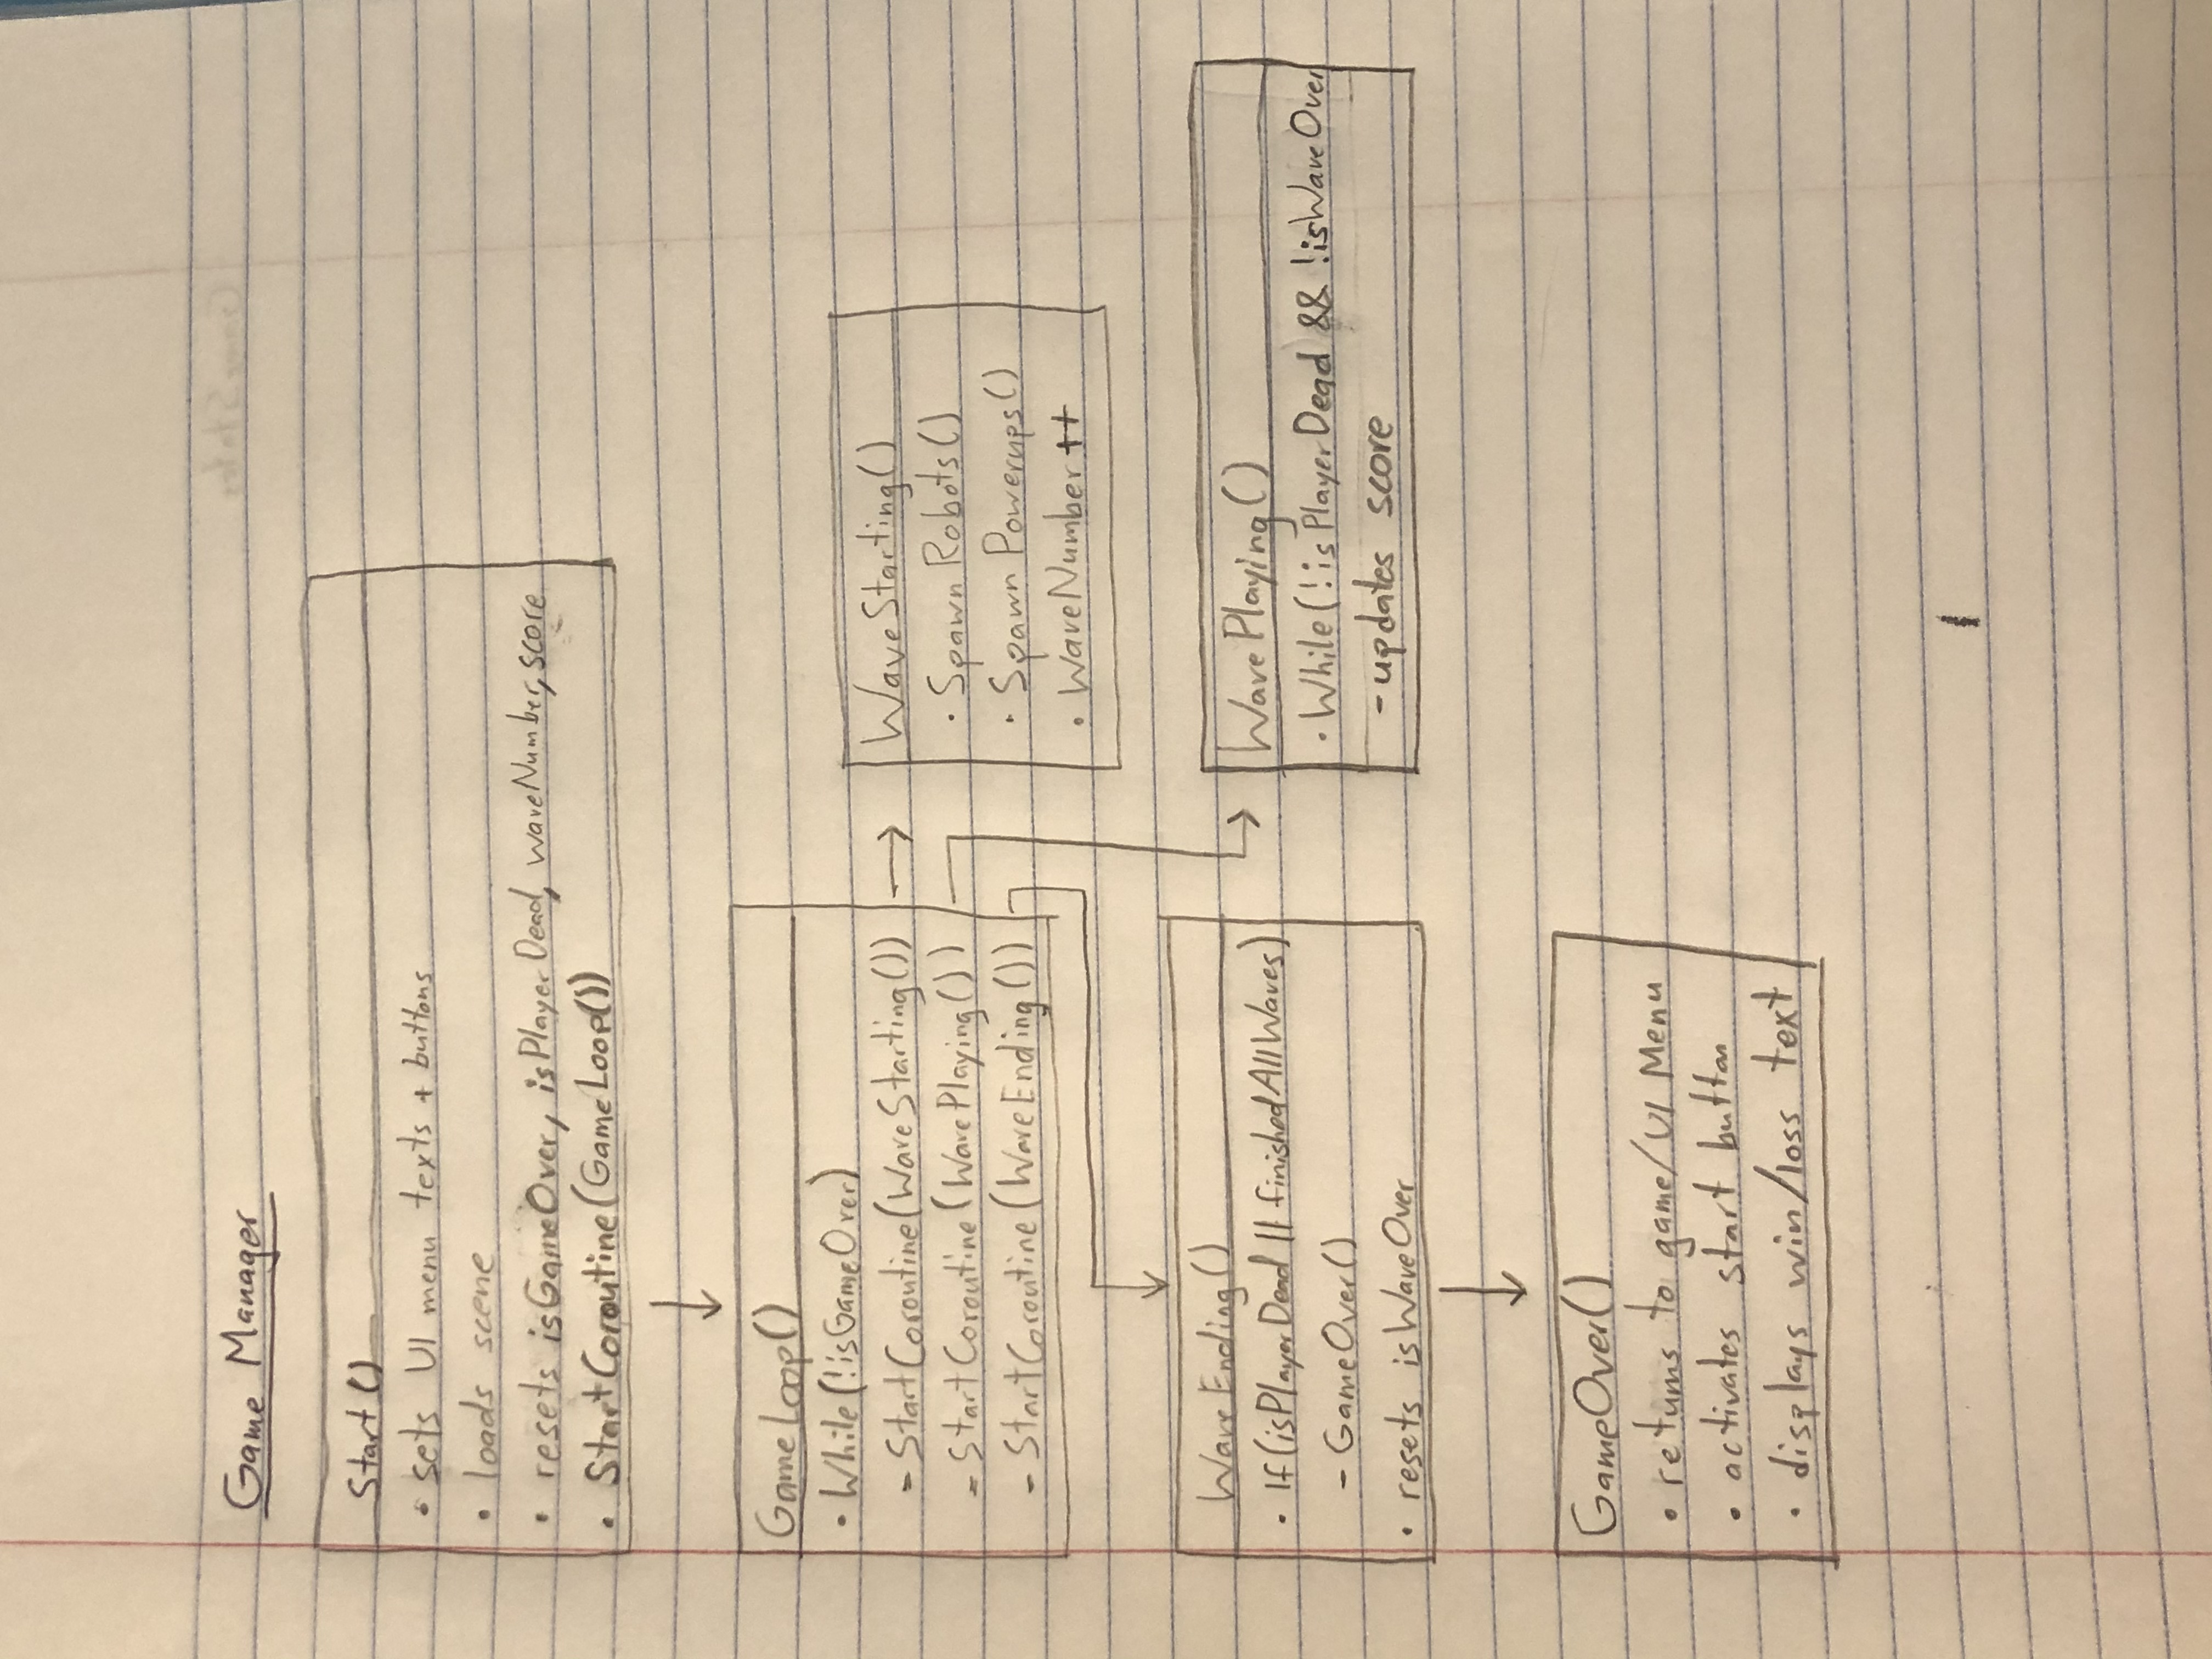 Game Manager
Start()
• sets UI menu texts + buttons
• loads scene
• resets isGameOver, isPlayerDead, waveNumber, score
• StartCoroutine(GameLoop())
GameLoop()
• While(!isGameOver)
- StartCoroutine(WaveStarting())
- StartCoroutine(WavePlaying())
- StartCoroutine(WaveEnding())
WaveStarting()
• SpawnRobots()
• SpawnPowerups()
• WaveNumber++
WaveEnding()
• If(isPlayerDead || finishedAllWaves)
- GameOver()
• resets isWaveOver
WavePlaying()
• While(!isPlayerDead && !isWaveOver
- updates score
GameOver()
• returns to game/UI Menu
• activates start button
• displays win/loss text